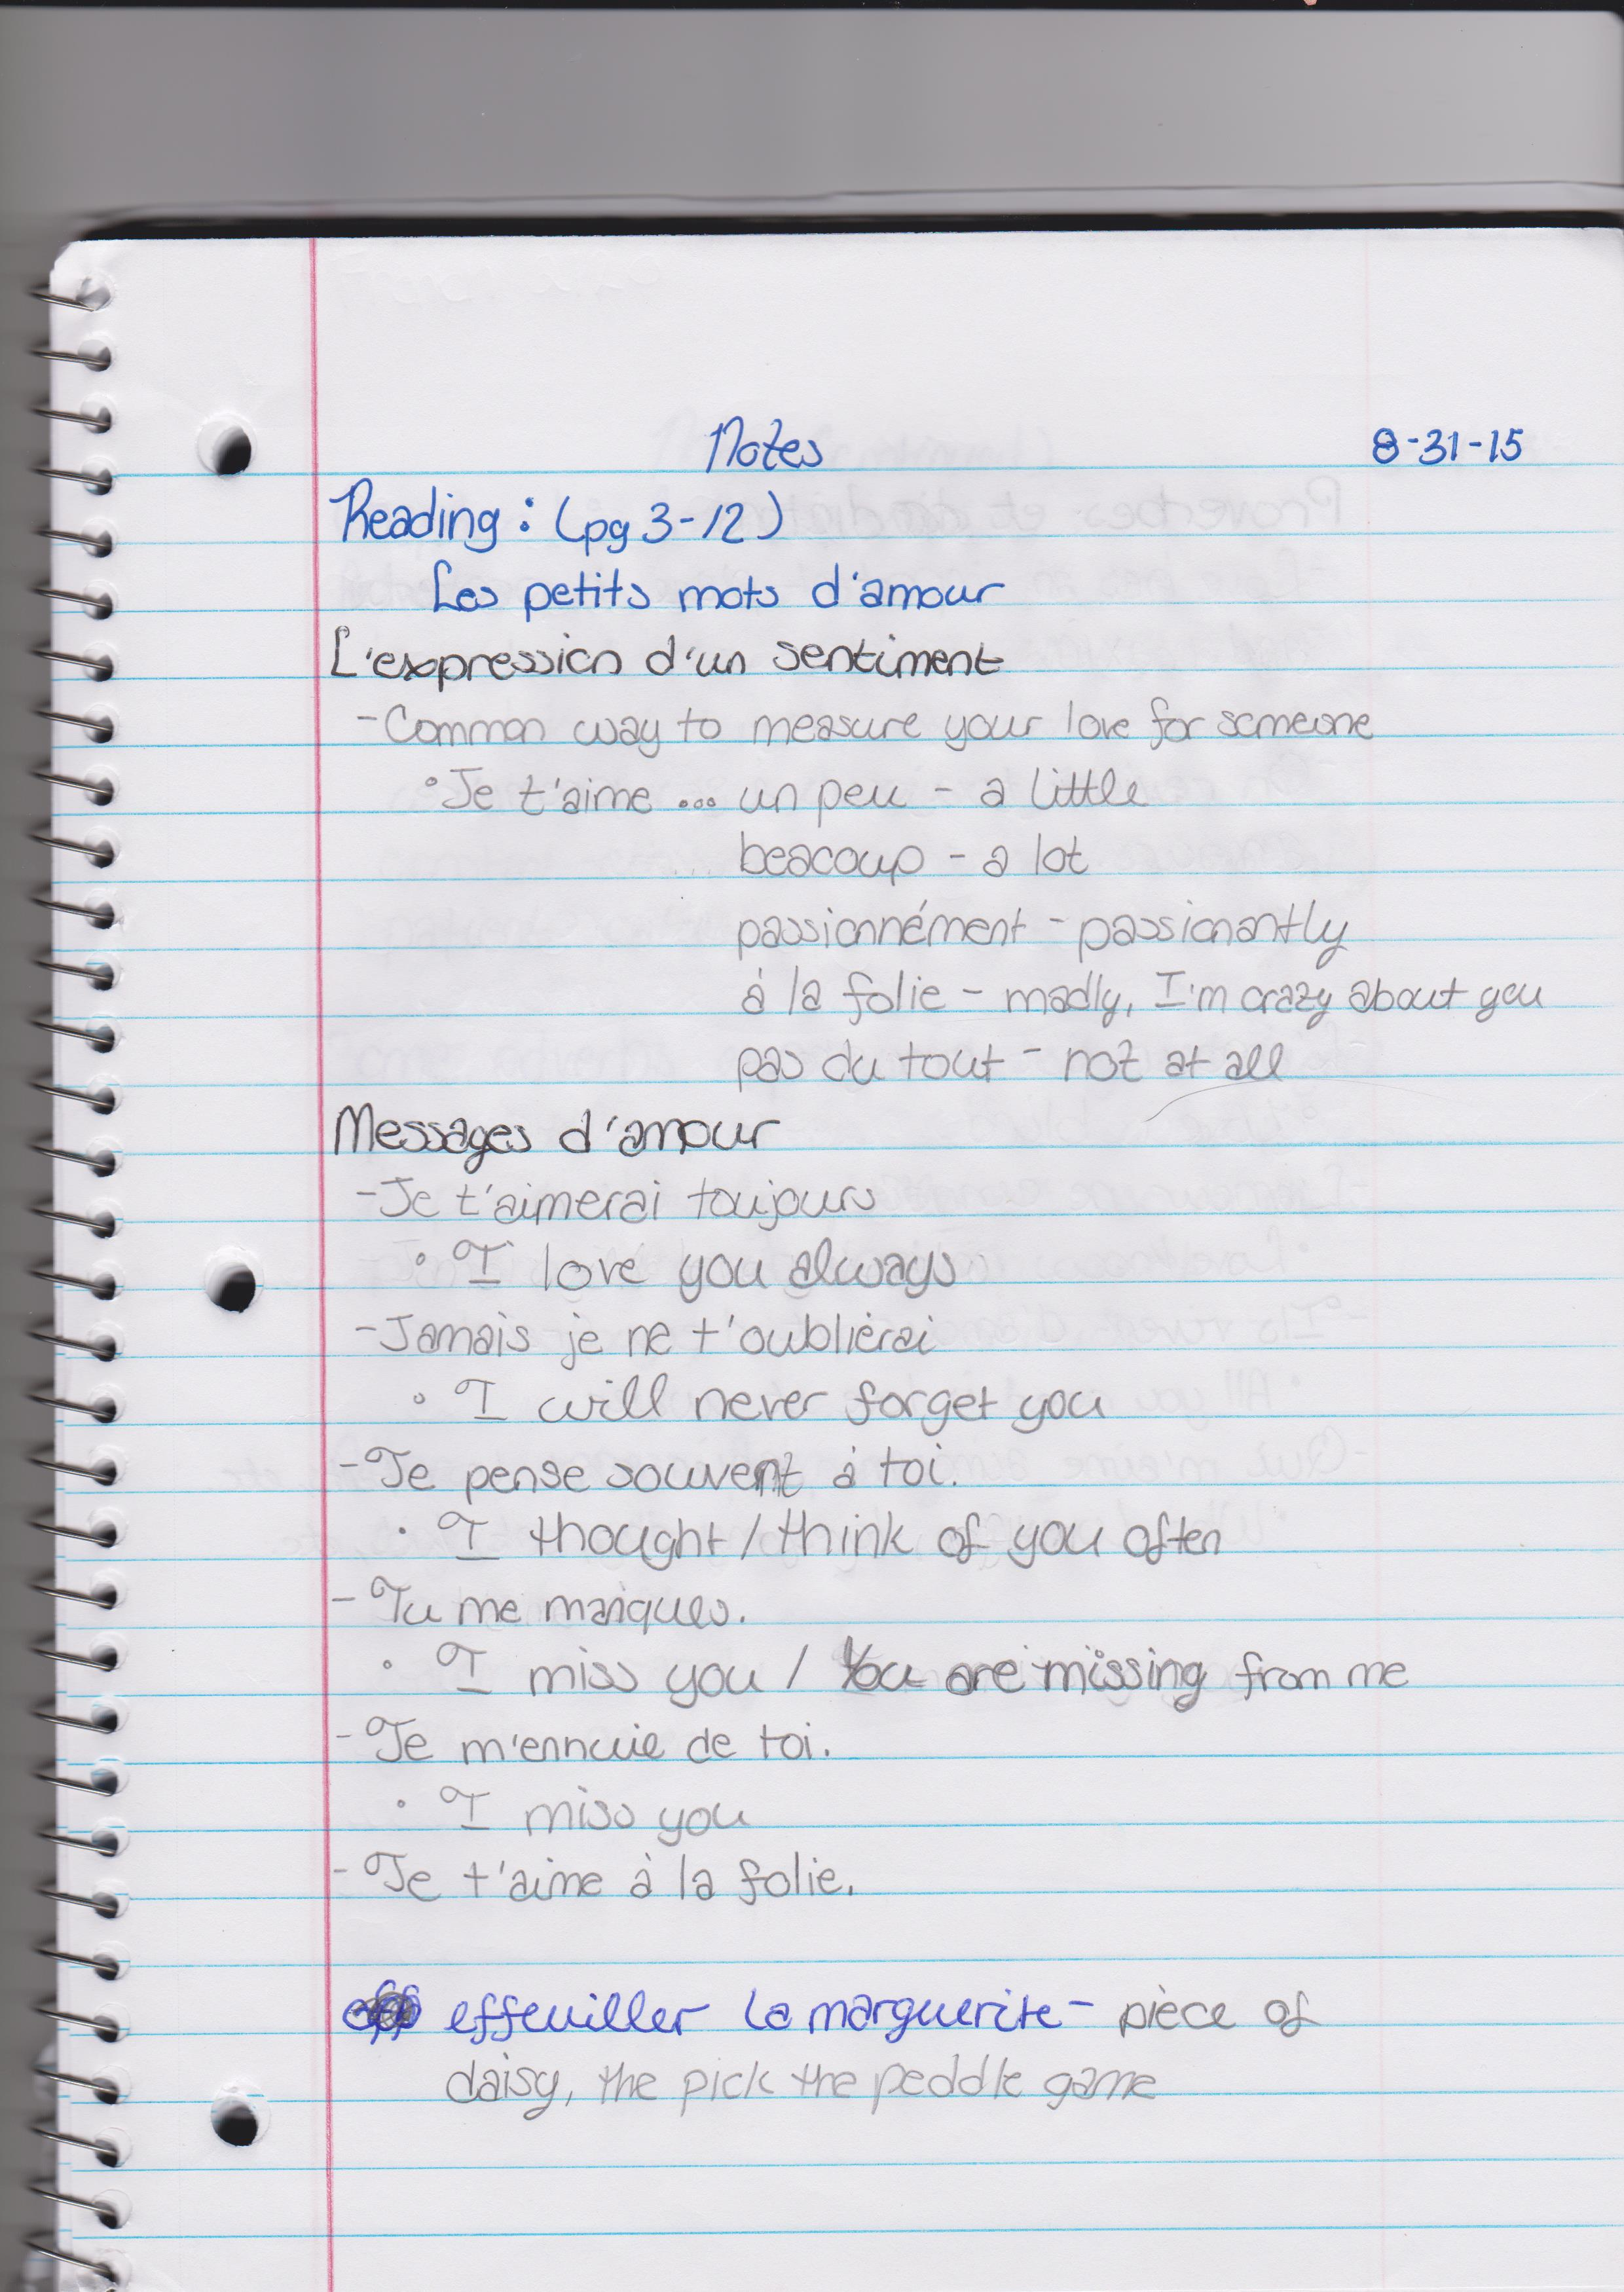 Notes 8-31-15
Reading: (pg 3-12)
Les petits mots d'amour
L'expression d'un sentiment
- Common way to measure your love for someone
° Je t'aime ... un peu - a little
beacoup - a lot
passionnément - passionantly
à la folie - madly, I'm crazy about you
pas du tout - not at all
Messages d'amour
- Je t'aimerai toujours
° I love you always
- Jamais je ne t'oublierai
° I will never forget you
- Je pense souvent à toi.
• I thought / think of you often
- Tu me manques.
° I miss you / You are missing from me
- Je m'ennuie de toi.
° I miss you
- Je t'aime à la folie.
effeuiller la marguerite - pièce of
daisy, the pick the peddle game